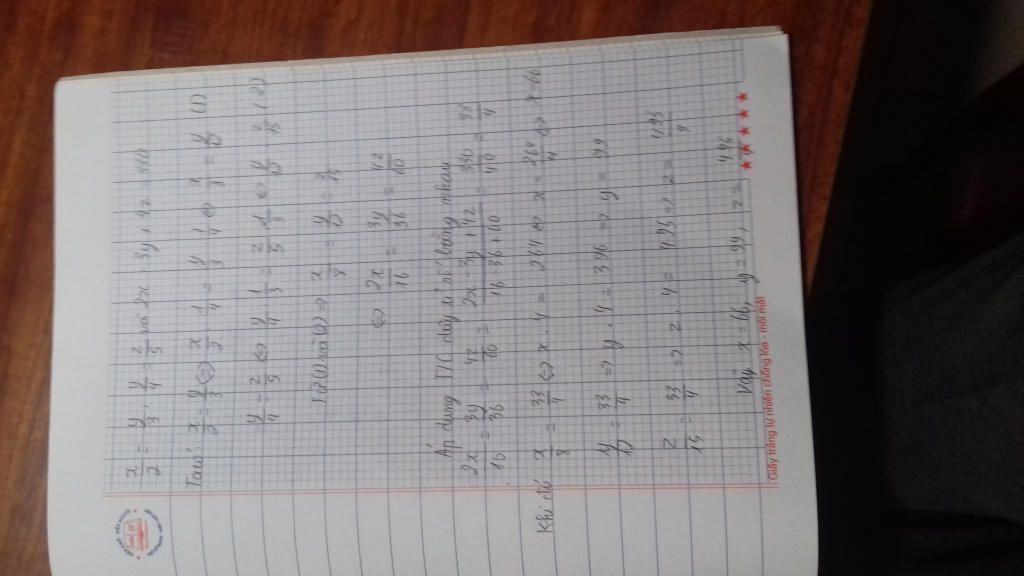 x/2 = y/3 , y/4 = z/5 và 2x - 3y + 4z = 330
Ta có: x/2 = y/3 <=> x/2 . 1/4 = y/3 . 1/4 <=> x/8 = y/12 (1)
y/4 = z/5 <=> y/4 . 1/3 = z/5 . 1/3 <=> y/12 = z/15 (2)
Từ (1) và (2) => x/8 = y/12 = z/15
<=> 2x/16 = 3y/36 = 4z/60
Áp dụng T/C dãy tỉ số bằng nhau
= 3y/36 = 4z/60 = = 330/40 = 33/4
Khi đó x/8 = 33/4 <=> x . 4 = 264 <=> x = 264/4 <=> x = 66
y/12 = 33/4 => y . 4 = 396 => y = 99
z/15 = 33/4 => z . 4 = 495 => z =
Vậy x = 66, y = 99, z =
Giấy trắng tự nhiên chống lóa - mỏi mắt